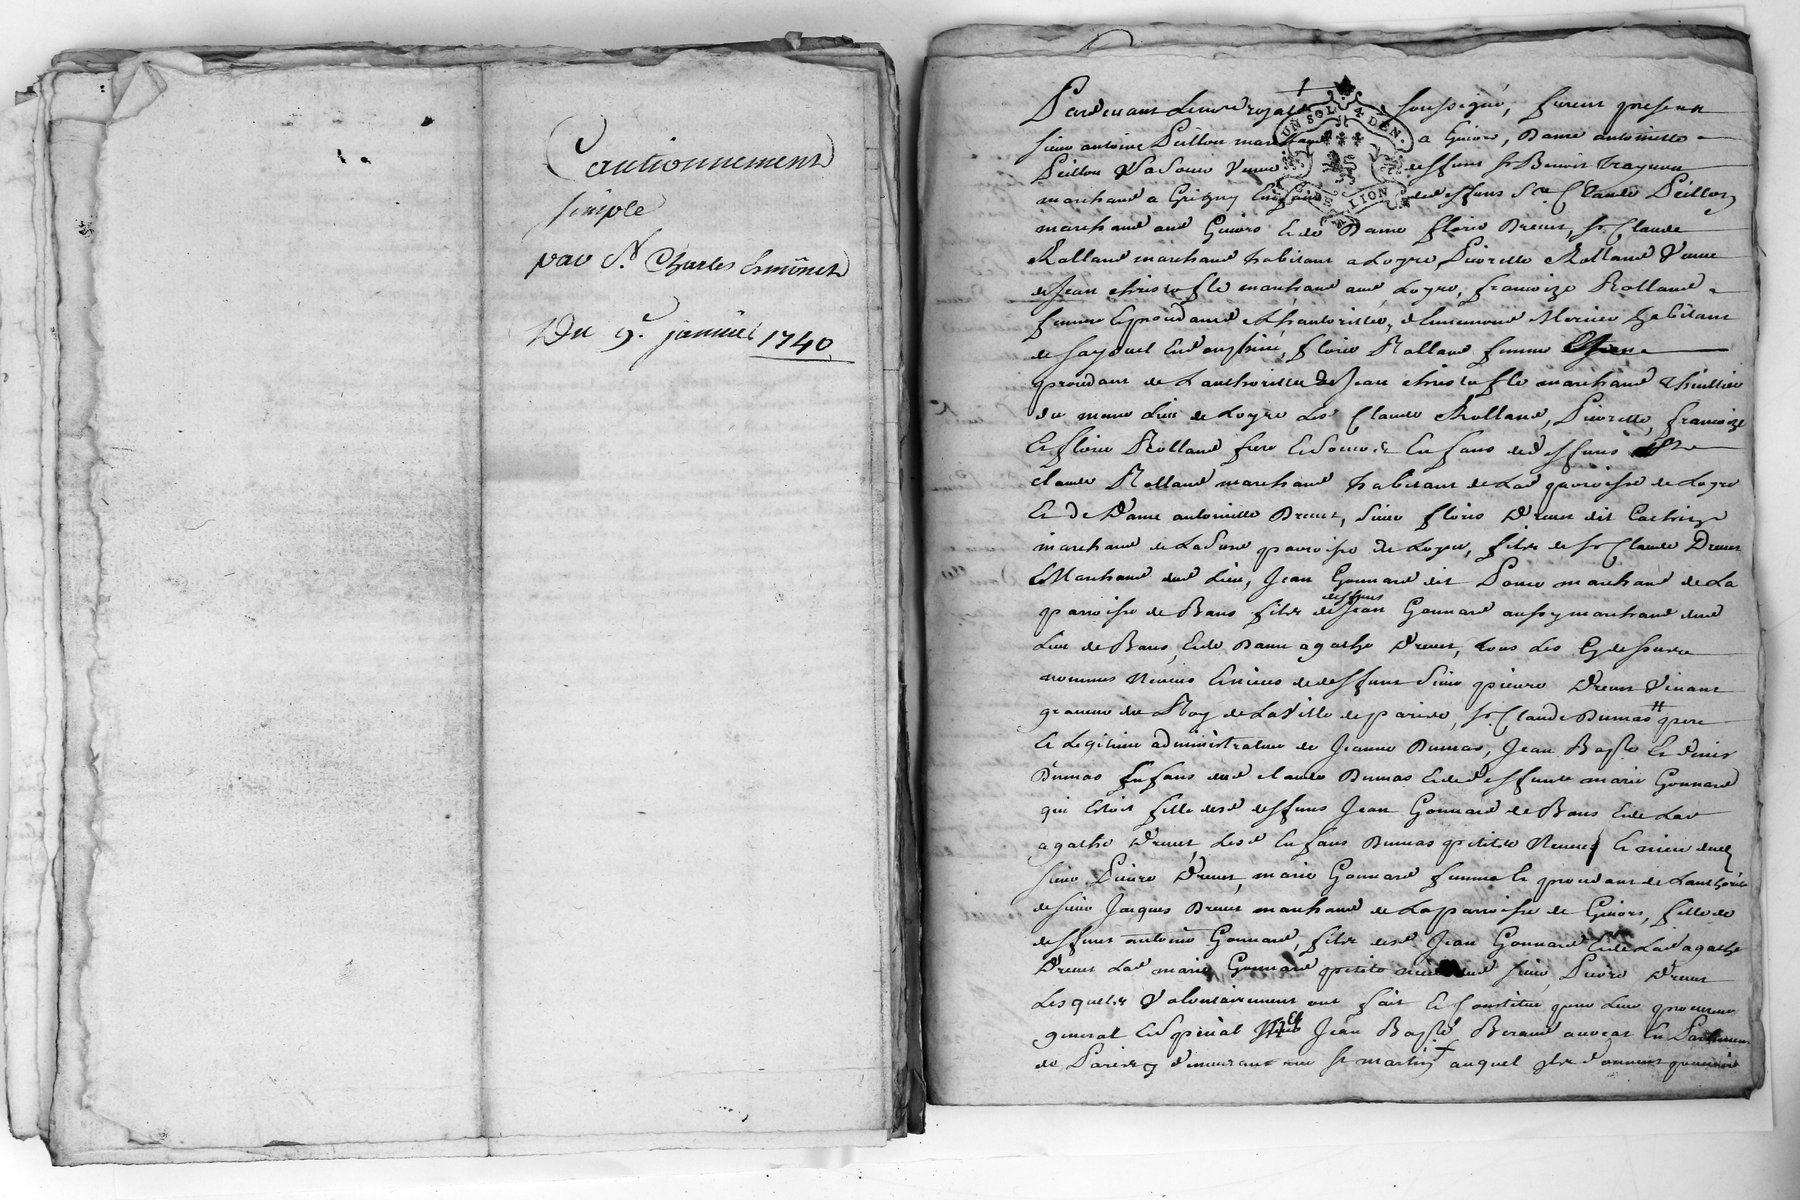 Cautionnement
simple
par Sr. Charles
Du 9e. janvier 1740
UN SOL 4 DEN.
DE LION
Pardevant Le nore royal soussigné, furent presens
sieur antoine Peillon marchand a Givors, Dame antoinette
Peillon veuve deffunt sr Benoit
marchand a Grigny Enfans de deffuns Sr Claude Peillon
marchand aud Givors et de Dame florie Drevet, sr. Claude
Rolland marchand habitant a Loyre, Pierrette Rolland Veuve
de Jean christofle marchand aud Loyre, francoize Rolland
femme Et procedant de Lhautorité, d habitant
de en dauphiné, florie Rolland femme
procedant de Lauthorité de Jean christofle marchand
du meme Lieu de Loyre Led Claude Rolland, Pierrette, francoize
Et florie Rolland frere Et soeurs Enfans de deffuns
claude Rolland marchand habitant de Lad parroisse de Loyre
Et de Dame antoinette Drevet, sieur floris Drevet dit
marchand de parroisse de Loyre, fils de sr Claude Drevet
Marchand dud Lieu, Jean Gonnard dit marchand de La
parroisse de Bans fils de deffuns Jean Gonnard aussy marchand dud
Lieu de Bans, Et de Dame agathe Drevet, tous Les Cy dessus
nommés Neveus Et nieces de deffunt sieur pierre Drevet Vivant
graveur du Roy de La Ville de paris, sr. Claude Dumas # pere
Et Legitime administrateur de Jeanne Dumas, Jean Baptte Et
Dumas Enfans dud claude Dumas Et de deffunte marie Gonnard
qui Etoit fille desd deffuns Jean Gonnard de Bans Et de Lad
agathe Drevet, Lesd Enfans Dumas petits Neveus Et niece dud
sieur Pierre Drevet, marie Gonnard femme Et procedant de Lauthorité
de sieur Jacques Drevet marchand de La parroisse de Givors, fille de
deffunt antoine Gonnard, fils desd Jean Gonnard Et de Lad agathe
Drevet Lad marie Gonnard petite niece dud sieur Pierre Drevet
Lesquels Volontairement ont fait Et Constitué pour Leur procureur
general Et special Jean Baptte Beraud avocat En Parlement
de Paris y demeurant rue st martin + auquel ils donnent pouvoir